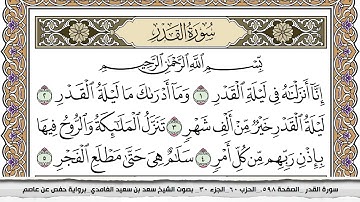 سُورَةُ الْقَدْرِ
بِسْمِ اللَّهِ الرَّحْمَٰنِ الرَّحِيمِ
إِنَّا أَنزَلْنَاهُ فِي لَيْلَةِ الْقَدْرِ ١ وَمَا أَدْرَاكَ مَا لَيْلَةُ الْقَدْرِ ٢
لَيْلَةُ الْقَدْرِ خَيْرٌ مِّنْ أَلْفِ شَهْرٍ ٣ تَنَزَّلُ الْمَلَائِكَةُ وَالرُّوحُ فِيهَا
بِإِذْنِ رَبِّهِم مِّن كُلِّ أَمْرٍ ٤ سَلَامٌ هِيَ حَتَّىٰ مَطْلَعِ الْفَجْرِ ٥
سورة القدر _ الصفحة ٥٩٨ _ الحزب ٦٠ _ الجزء ٣٠ _ بصوت الشيخ سعد بن سعيد الغامدي _ برواية حفص عن عاصم